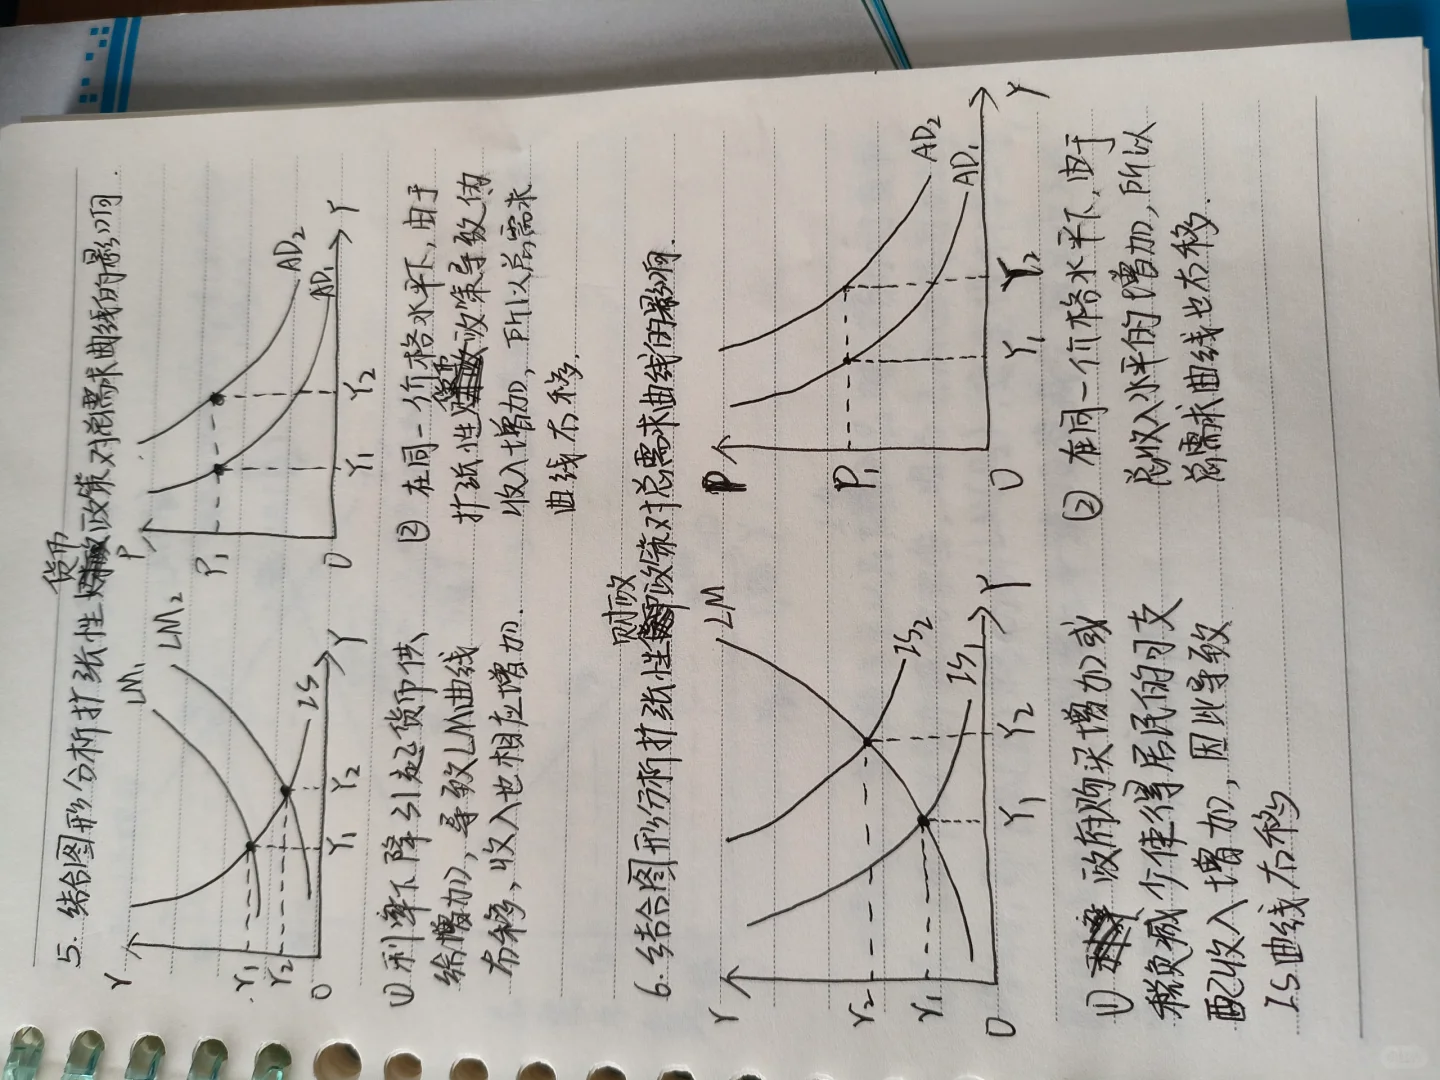 货币
5. 结合图形分析扩张性政策对总需求曲线的影响.
r
LM₁
LM₂
IS
r₁
r₂
O
Y₁
Y₂
Y
P
P₁
AD₂
AD₁
O
Y₁
Y₂
Y
① 利率下降引起货币供
给增加, 导致LM曲线
右移, 收入也相应增加.
② 在同一价格水平下, 由于
货币
扩张性政策导致
收入增加, 所以总需求
曲线右移.
财政
6. 结合图形分析扩张性政策对总需求曲线的影响.
r
LM
IS₂
IS₁
r₂
r₁
O
Y₁
Y₂
Y
P
P₁
AD₂
AD₁
O
Y₁
Y₂
Y
① 政府购买增加或
税负减少使得居民的可支
配收入增加, 因此导致
IS曲线右移
② 在同一价格水平下, 由于
总收入水平的增加, 所以
总需求曲线也右移.